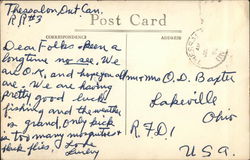 Thessalon Ont Can.
RR#3
Post Card
CORRESPONDENCE
ADDRESS
Dear Folks - Been a
longtime no see. We
are O.K. and hope you all
are. We are having
pretty good luck
fishing and the weather
is grand, only kick
is too many mosquitoes &
black flies. Love
Mr & Mrs O.D. Baxter
Lakeville
Ohio
R.F.D 1
U.S.A.